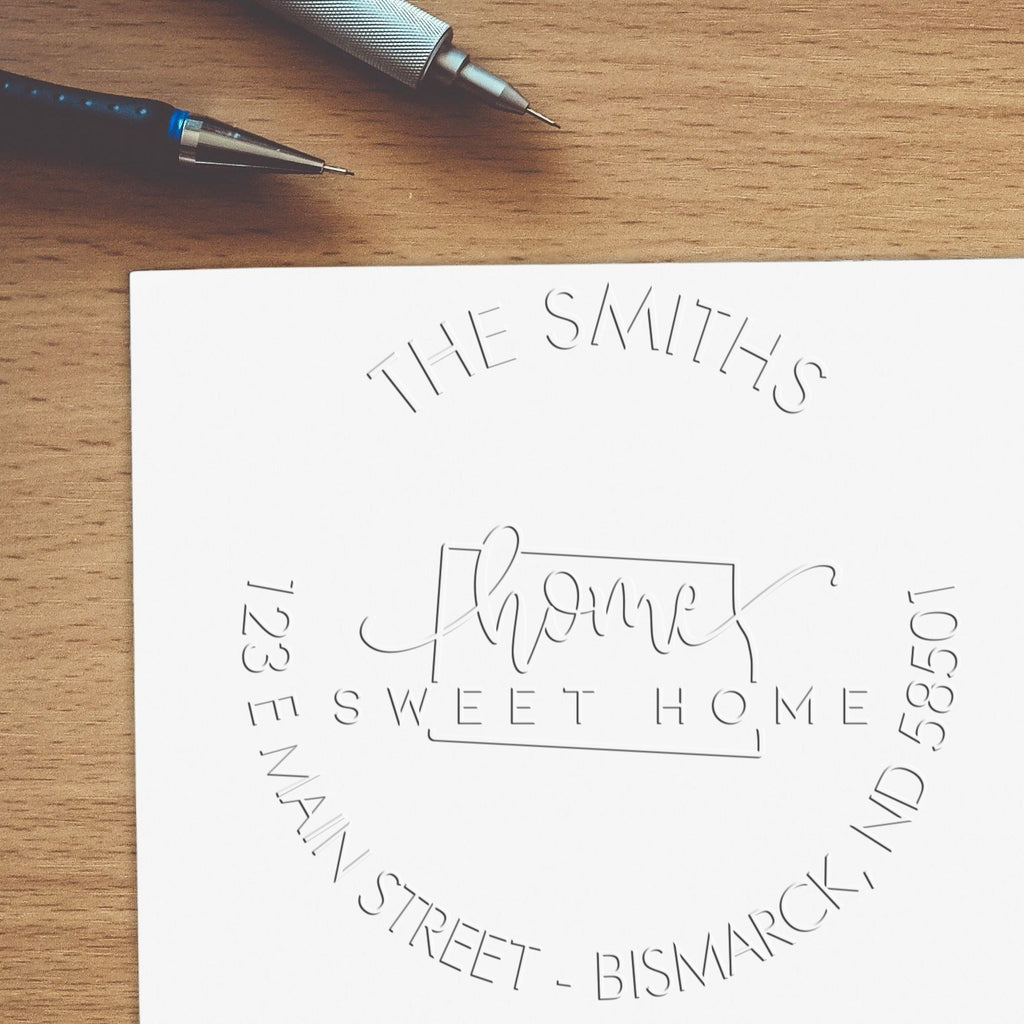 THE SMITHS
home
SWEET HOME
123 E MAIN STREET - BISMARCK, ND 58501